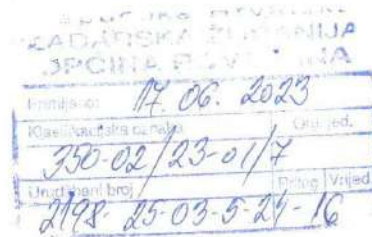 ZADARSKA ŽUPANIJA
OPĆINA
Primljeno: 17. 06. 2023
Klasifikacijska oznaka Org. jed.
350-02/23-01/7
Urudžbeni broj Prilog Vrijed.
2198-25-03-5-24-16